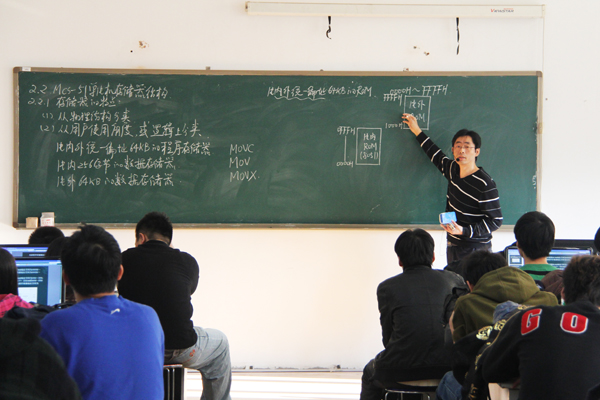 2.2 MCS-51单片机存储器结构
2.2.1 存储器的概述
(1) 从物理结构分类
(2) 从用户使用角度, 或逻辑上分类
片内外统一编址64KB的程序存储器 MOVC
片内256字节的数据存储器 MOV
片外64KB的数据存储器 MOVX
片内外统一编址64KB的空间 0000H~FFFFH
FFFFH
片外
ROM
1000H
0FFFH
片内
ROM
000H
GO